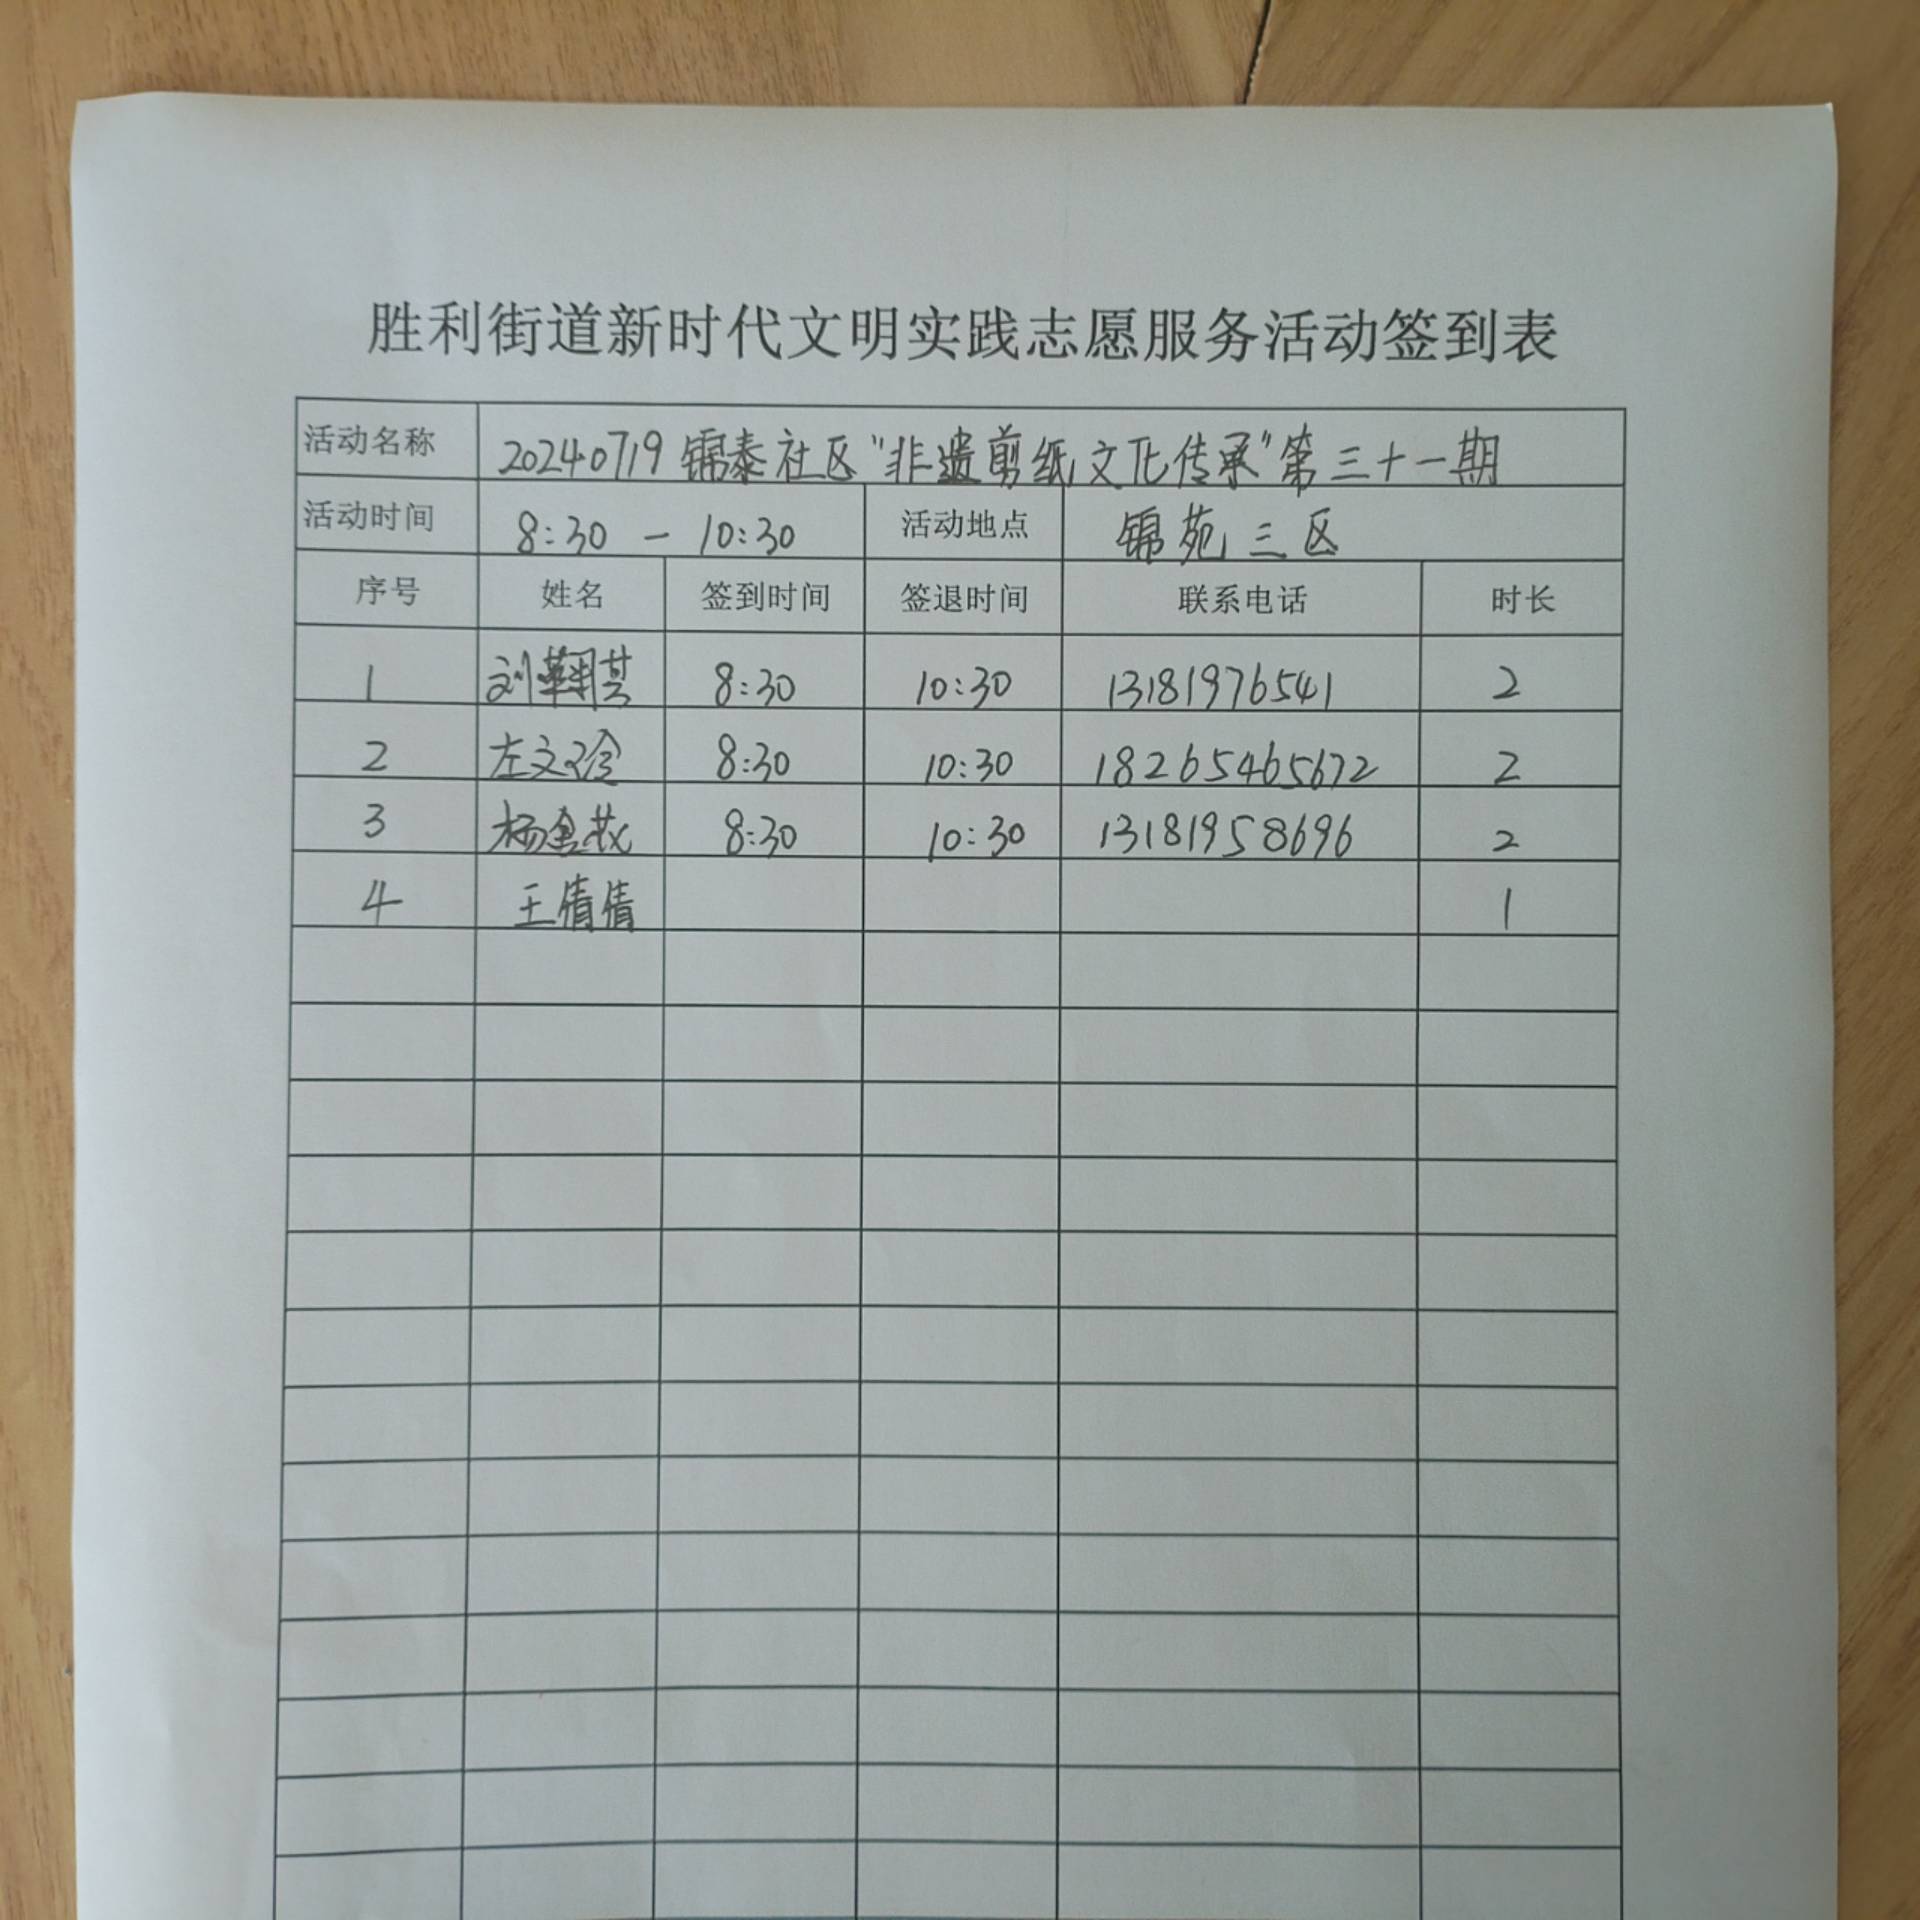 胜利街道新时代文明实践志愿服务活动签到表
活动名称 20240719锦泰社区"非遗剪纸文化传承"第三十一期
活动时间 8:30 — 10:30 活动地点 锦苑三区
序号 姓名 签到时间 签退时间 联系电话 时长
1 刘 8:30 10:30 13181976541 2
2 左文玲 8:30 10:30 18265465672 2
3 杨 8:30 10:30 13181958696 2
4 王倩倩 1